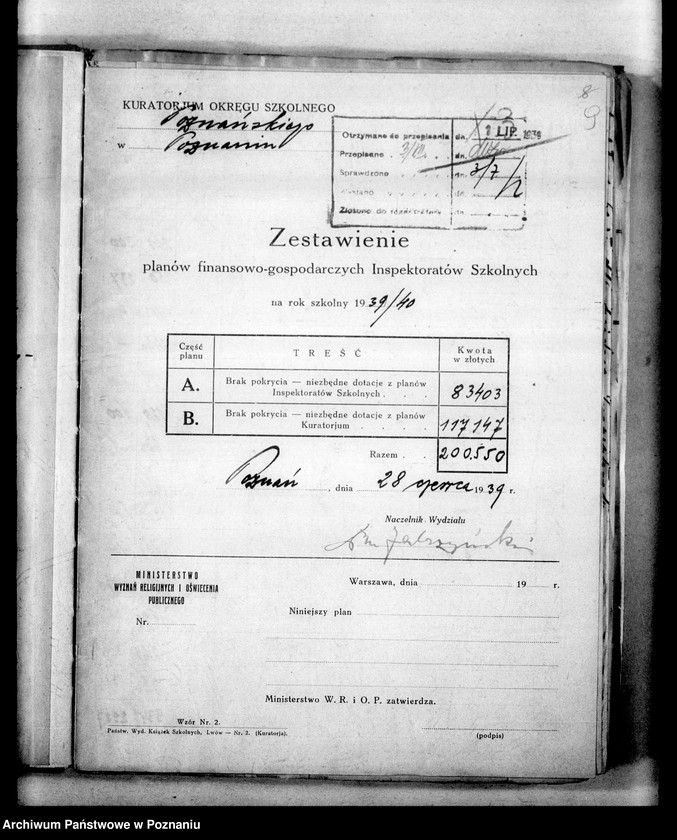 8
9
KURATORJUM OKRĘGU SZKOLNEGO
Poznańskiego
w Poznaniu
Otrzymano do przepisania dn. 1 LIP. 1939
Przepisano . . . . dn.
Sprawdzono . . . . dn. 3/7
Złożono do
Zestawienie
planów finansowo-gospodarczych Inspektoratów Szkolnych
na rok szkolny 1939/40
Część planu
TREŚĆ
Kwota w złotych
A.
Brak pokrycia — niezbędne dotacje z planów
Inspektoratów Szkolnych . . .
83403
B.
Brak pokrycia — niezbędne dotacje z planów
Kuratorjum . . . .
117147
Razem . . 200.550
Poznań, dnia 28 czerwca 1939 r.
Naczelnik Wydziału
MINISTERSTWO
WYZNAŃ RELIGIJNYCH I OŚWIECENIA
PUBLICZNEGO
Nr.
Warszawa, dnia 19 r.
Niniejszy plan
Ministerstwo W. R. i O. P. zatwierdza.
Wzór Nr. 2.
Państw. Wyd. Książek Szkolnych, Lwów — Nr. 2. (Kuratorja).
(podpis)
Archiwum Państwowe w Poznaniu